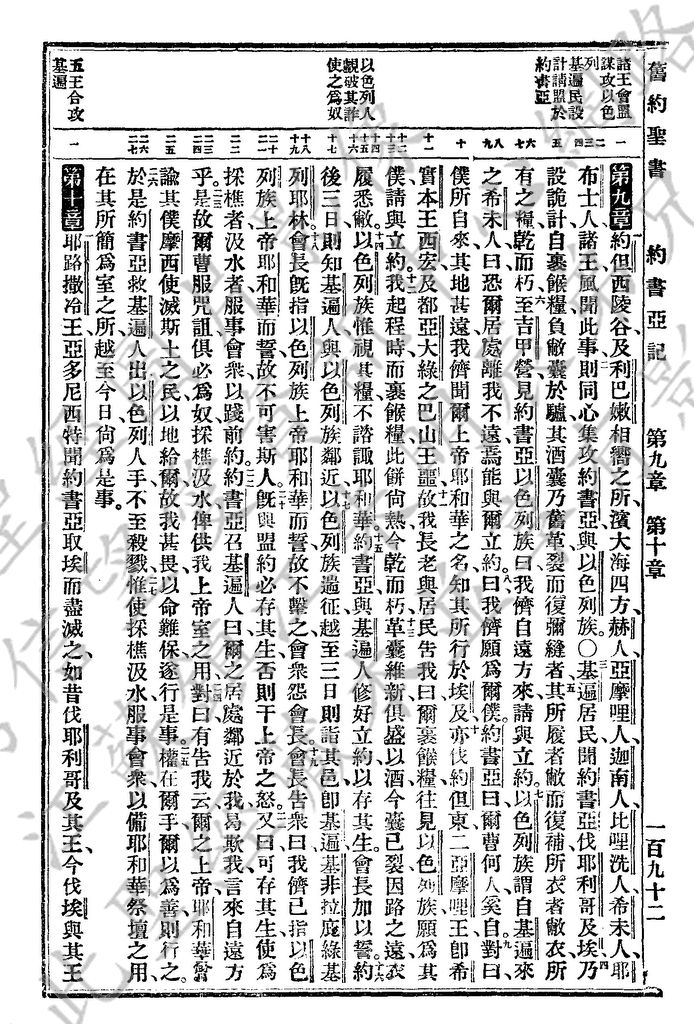 舊約聖書 約書亞記 第九章 第十章 一百九十二
諸王會盟
謀攻以色
列
基遍民設
計請盟於
約書亞
以色列人
覷破其詐
使之為奴
五王合攻
基遍
第九章 約但西陵谷及利巴嫩相嚮之所濱大海四方赫人亞摩哩人迦南人比哩洗人希未人耶
布士人諸王風聞此事則同心集攻約書亞與以色列族〇基遍居民聞約書亞伐耶利哥及埃乃
設詭計自裹餱糧負敝囊於驢其酒囊乃舊革裂而復彌縫者其所履者敝而復補所衣者敝衣所
有之糧乾而朽至吉甲營見約書亞以色列族曰我儕自遠方來請與立約以色列族謂自基遍來
之希未人曰恐爾居處離我不遠焉能與爾立約曰我儕願為爾僕約書亞曰爾曹何人奚自對曰
僕所自來其地甚遠我儕聞爾上帝耶和華之名知其所行於埃及亦伐約但東二亞摩哩王卽希
實本王西宏及都亞大綠之巴山王噩故我長老與居民告我曰爾裹餱糧往見以色列族願為其
僕請與立約我起程時而裹餱糧此餅尙熱今乾而朽革囊維新俱盛以酒今囊已裂因路之遠衣
履悉敝以色列族惟視其糧不諮諏耶和華約書亞與基遍人修好立約以存其生會長加以誓約
後三日則知基遍人與以色列族鄰近以色列族遄征越至三日則詣其邑卽基遍基非拉庇綠基
列耶林會長旣指以色列族上帝耶和華而誓故不擊之會衆怨會長會長告衆曰我儕已指以色
列族上帝耶和華而誓故不可害斯人旣與盟約必存其生否則干上帝之怒又曰可存其生使為
採樵者汲水者服事會衆以踐前約約書亞召基遍人曰爾之居處鄰近於我曷欺我言來自遠方
乎是故爾曹服咒詛俱必為奴採樵汲水俾供我上帝室之用對曰有告我云爾之上帝耶和華嘗
諭其僕摩西使滅斯土之民以地給爾故我甚畏以命難保遂行是事權在爾手爾以為善則行之
於是約書亞救基遍人出以色列人手不至殺戮惟使採樵汲水服事會衆以備耶和華祭壇之用
在其所簡為室之所越至今日尙為是事
第十章 耶路撒冷王亞多尼西特聞約書亞取埃而盡滅之如昔伐耶利哥及其王今伐埃與其王